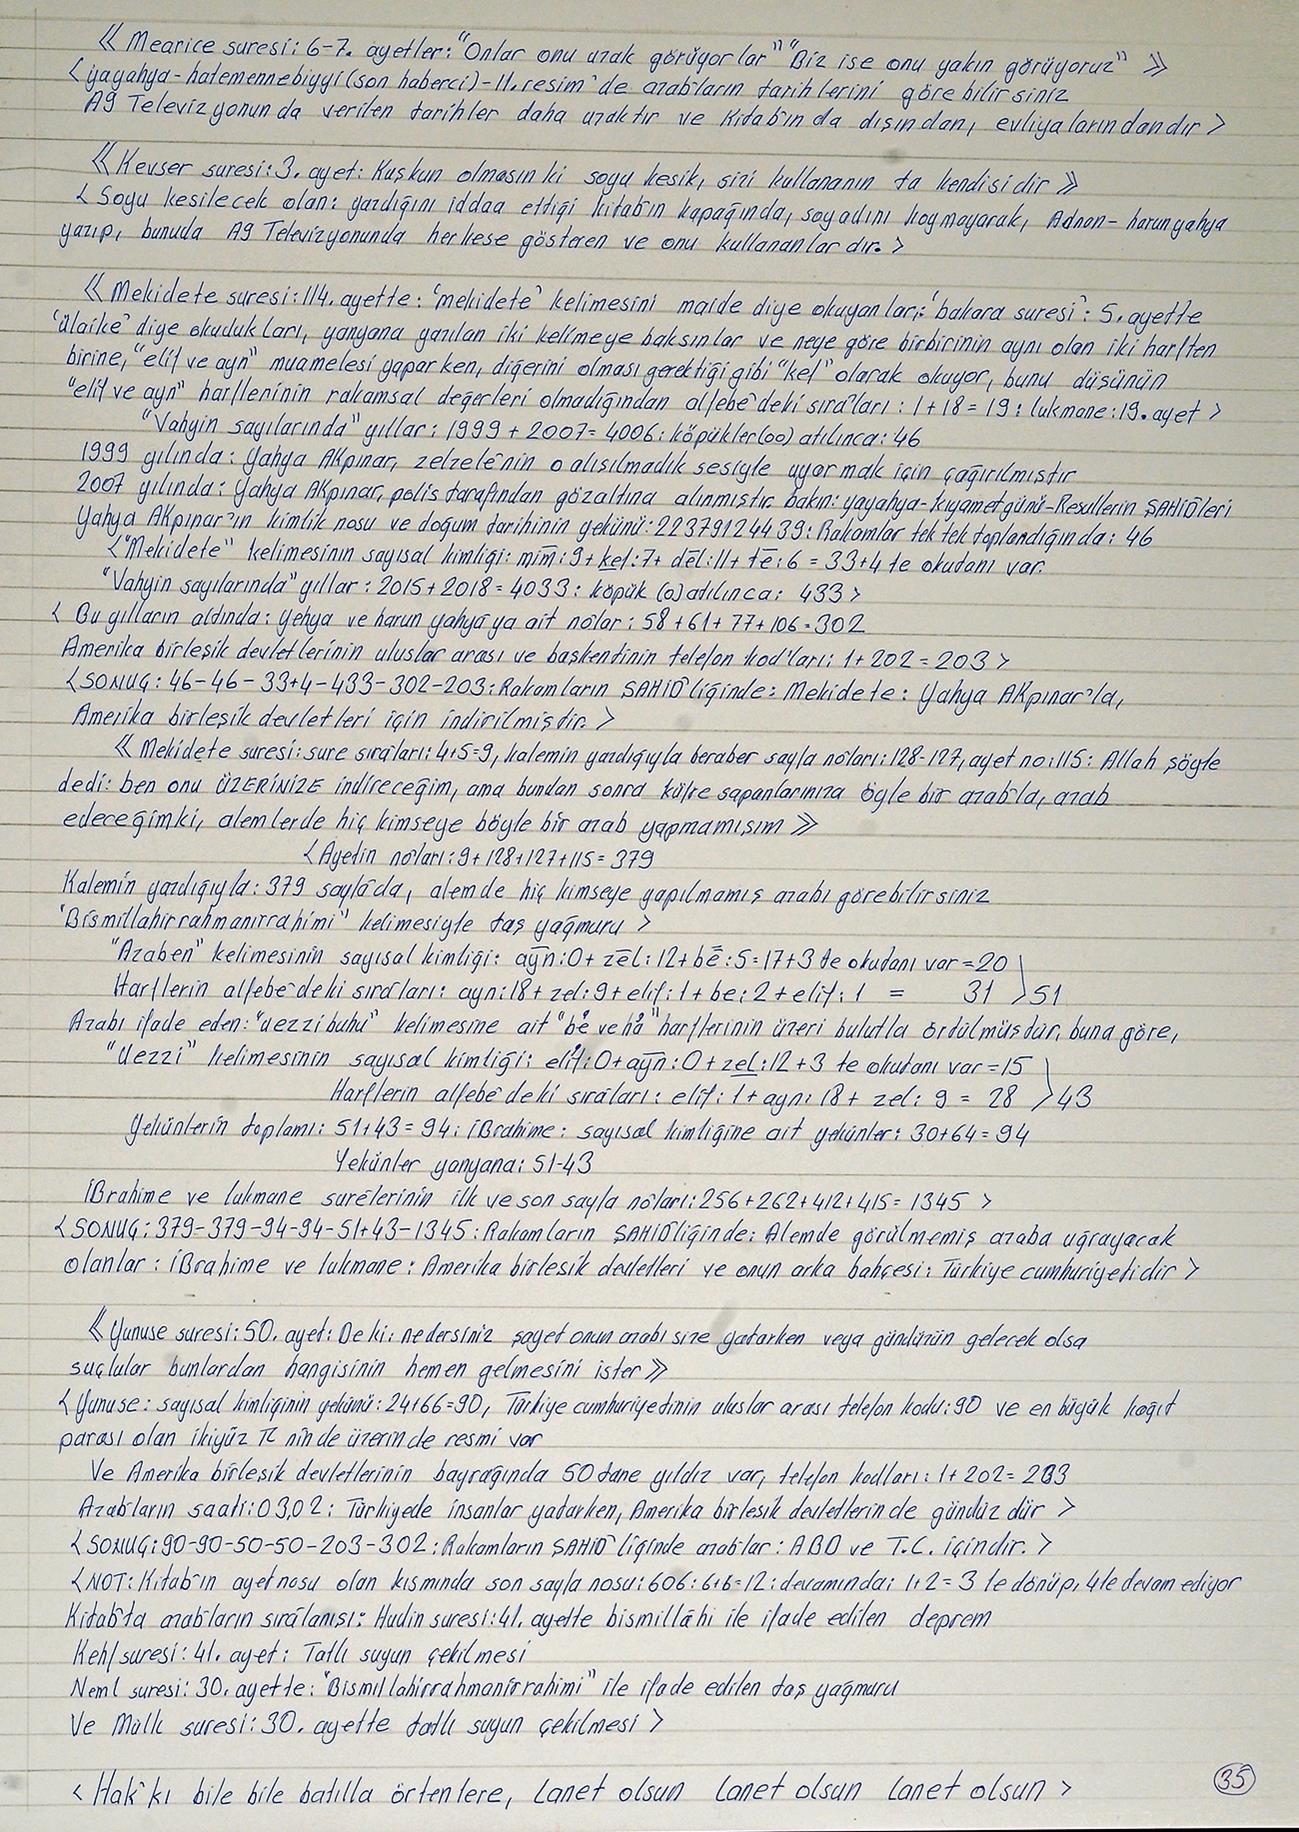 《 Mearice suresi: 6-7. ayetler: "Onlar onu uzak görüyorlar" "Biz ise onu yakın görüyoruz" 》
< yayahya-hatemennebiyyi (son haberci) - 11. resim'de azab'ların tarihlerini görebilirsiniz
A9 Televizyonunda verilen tarihler daha uzaktır ve Kitab'ın da dışından, evliyalarındandır >
《 Kevser suresi: 3. ayet: Kuşkun olmasınki soyu kesik, sizi kullananın ta kendisidir 》
< Soyu kesilecek olan: yazdığını iddaa ettiği kitab'ın kapağında, soyadını koymayarak, Adnan-harunyahya
yazıp, bunuda A9 Televizyonunda herkese gösteren ve onu kullananlardır. >
《 Mekidete suresi: 114. ayette: 'mekidete' kelimesini maide diye okuyanları: 'bakara suresi': 5. ayette
'ülaike' diye okudukları, yanyana yazılan iki kelimeye baksınlar ve neye göre birbirinin aynı olan iki harften
birine, "elif ve ayn" muamelesi yaparken, diğerini olması gerektiği gibi "kef" olarak okuyor, bunu düşünün
"elif ve ayn" harflerinin rakamsal değerleri olmadığından alfebe'deki sıra'ları: 1+18=19: lukmane: 19. ayet >
"Vahyin sayılarında" yıllar: 1999 + 2007= 4006: köpükler (oo) atılınca: 46
1999 yılında: Yahya AKpınar, zelzele'nin o alışılmadık sesiyle uyarmak için çağırılmıştır
2007 yılında: Yahya AKpınar, polis tarafından gözaltına alınmıştır. bakın: yayahya-kıyametgünü-Resullerin ŞAHİD'leri
Yahya AKpınar'ın kimlik nosu ve doğum tarihinin yekünü: 22379124439: Rakamlar tek tek toplandığında: 46
< "Mekidete" kelimesinin sayısal kimliği: mim: 9+ kef: 7+ del: 11+ te: 6 = 33+4 te okutanı var.
"Vahyin sayılarında" yıllar: 2015 + 2018= 4033: köpük (o) atılınca: 433 >
< Bu yılların altında: Yahya ve harun yahya'ya ait no'lar: 58+61+77+106=302
Amerika birleşik devletlerinin uluslar arası ve başkentinin telefon kod'ları: 1+202=203 >
< SONUÇ: 46-46-33+4-433-302-203: Rakamların ŞAHİD'liğinde: Mekidete: Yahya AKpınar'la,
Amerika birleşik devletleri için indirilmiştir. >
《 Mekidete suresi: sure sıra'ları: 4+5=9, kalemin yazdığıyla beraber sayfa no'ları: 128-127, ayet no: 115: Allah şöyle
dedi: ben onu ÜZERİNİZE indireceğim, ama bundan sonra küfre sapanlarınıza öyle bir azab'la, azab
edeceğimki, alemlerde hiç kimseye böyle bir azab yapmamışım 》
< Ayetin no'ları: 9+128+127+115= 379
Kalemin yazdığıyla: 379 sayfa'da, alemde hiç kimseye yapılmamış azabı görebilirsiniz
'Bismillahirrahmanırrahimi" kelimesiyle taş yağmuru >
"Azaben" kelimesinin sayısal kimliği: ayn: 0+ zel: 12+ be: 5=17+3 te okutanı var=20
Harflerin alfebe'deki sıra'ları: ayn: 18+ zel: 9+ elif: 1+ be: 2+ elif: 1 = 31 > 51
Azabı ifade eden: "uezzibuhu" kelimesine ait "be ve ha" harflerinin üzeri bulutla örtülmüşdür, buna göre,
"Uezzi" kelimesinin sayısal kimliği: elif: 0+ ayn: 0+ zel: 12+3 te okutanı var=15
Harflerin alfebe'deki sıra'ları: elif: 1+ ayn: 18+ zel: 9 = 28 > 43
Yekünlerin toplamı: 51+43= 94: İBrahime: sayısal kimliğine ait yekünler: 30+64= 94
Yekünler yanyana: 51-43
İBrahime ve lukmane sure'lerinin ilk ve son sayfa no'ları: 256+262+412+415= 1345 >
< SONUÇ: 379-379-94-94-51+43-1345: Rakamların ŞAHİD'liğinde: Alemde görülmemiş azaba uğrayacak
olanlar: İBrahime ve lukmane: Amerika birleşik devletleri ve onun arka bahçesi: Türkiye cumhuriyetidir >
《 Yunuse suresi: 50. ayet: De ki: ne dersiniz şayet onun azabı size yatarken veya gündüzün gelecek olsa
suçlular bunlardan hangisinin hemen gelmesini ister 》
< Yunuse: sayısal kimliğinin yekünü: 24+66=90, Türkiye cumhuriyetinin uluslar arası telefon kodu: 90 ve en büyük kağıt
parası olan ikiyüz TL nin de üzerinde resmi var
Ve Amerika birleşik devletlerinin bayrağında 50 tane yıldız var, telefon kodları: 1+202= 203
Azab'ların saati: 03,02: Türkiyede insanlar yatarken, Amerika birleşik devletlerinde gündüz dür >
< SONUÇ: 90-90-50-50-203-302: Rakamların ŞAHİD'liğinde azab'lar: ABD ve T.C. içindir. >
< NOT: Kitab'ın ayet nosu olan kısmında son sayfa nosu: 606: 6+6=12: devamında: 1+2= 3 te dönüp, 4 te devam ediyor
Kitab'ta azab'ların sıra'lanışı: Hudin suresi: 41. ayette bismillahi ile ifade edilen deprem
Kehf suresi: 41. ayet: Tatlı suyun çekilmesi
Neml suresi: 30. ayette: 'Bismillahirrahmanirrahimi" ile ifade edilen taş yağmuru
Ve Mülk suresi: 30. ayette tatlı suyun çekilmesi >
< Hak'kı bile bile batılla örtenlere, Lanet olsun Lanet olsun Lanet olsun >
35